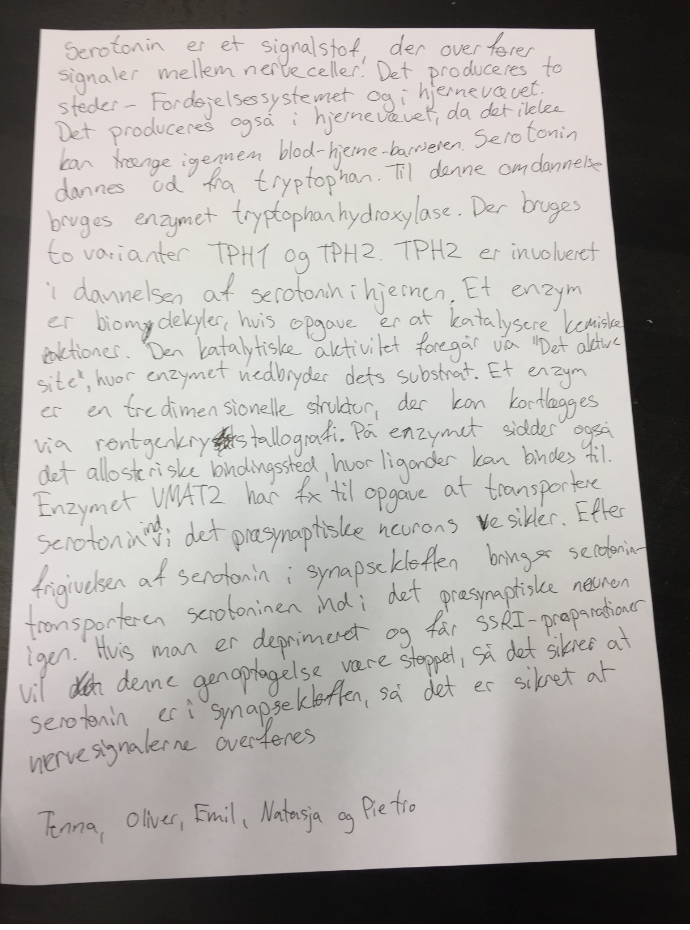 Serotonin er et signalstof, der overfører
signaler mellem nerveceller. Det produceres to
steder - Fordøjelsessystemet og i hjernevævet.
Det produceres også i hjernevævet, da det ikke
kan trænge igennem blod-hjerne-barrieren. Serotonin
dannes ud fra tryptophan. Til denne omdannelse
bruges enzymet tryptophanhydroxylase. Der bruges
to varianter TPH1 og TPH2. TPH2 er involveret
i dannelsen af serotonin i hjernen. Et enzym
er biomolekyler, hvis opgave er at katalysere kemiske
reaktioner. Den katalytiske aktivitet foregår via "Det aktive
site", hvor enzymet nedbryder dets substrat. Et enzym
er en tredimensionelle struktur, der kan kortlægges
via røntgenkrystallografi. På enzymet sidder også
det allosteriske bindingssted, hvor ligander kan bindes til.
Enzymet VMAT2 har fx til opgave at transportere
serotonin ind i det præsynaptiske neurons vesikler. Efter
frigivelsen af serotonin i synapsekløften bringer serotonin-
transporteren serotoninen ind i det præsynaptiske neuron
igen. Hvis man er deprimeret og får SSRI-præparationer
vil denne genoptagelse være stoppet, så det sikres at
serotonin er i synapsekløften, så det er sikret at
nervesignalerne overføres
Tenna, Oliver, Emil, Natasja og Pietro